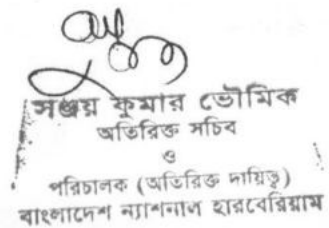 সঞ্জয় কুমার ভৌমিক
অতিরিক্ত সচিব
ও
পরিচালক (অতিরিক্ত দায়িত্ব)
বাংলাদেশ ন্যাশনাল হারবেরিয়াম